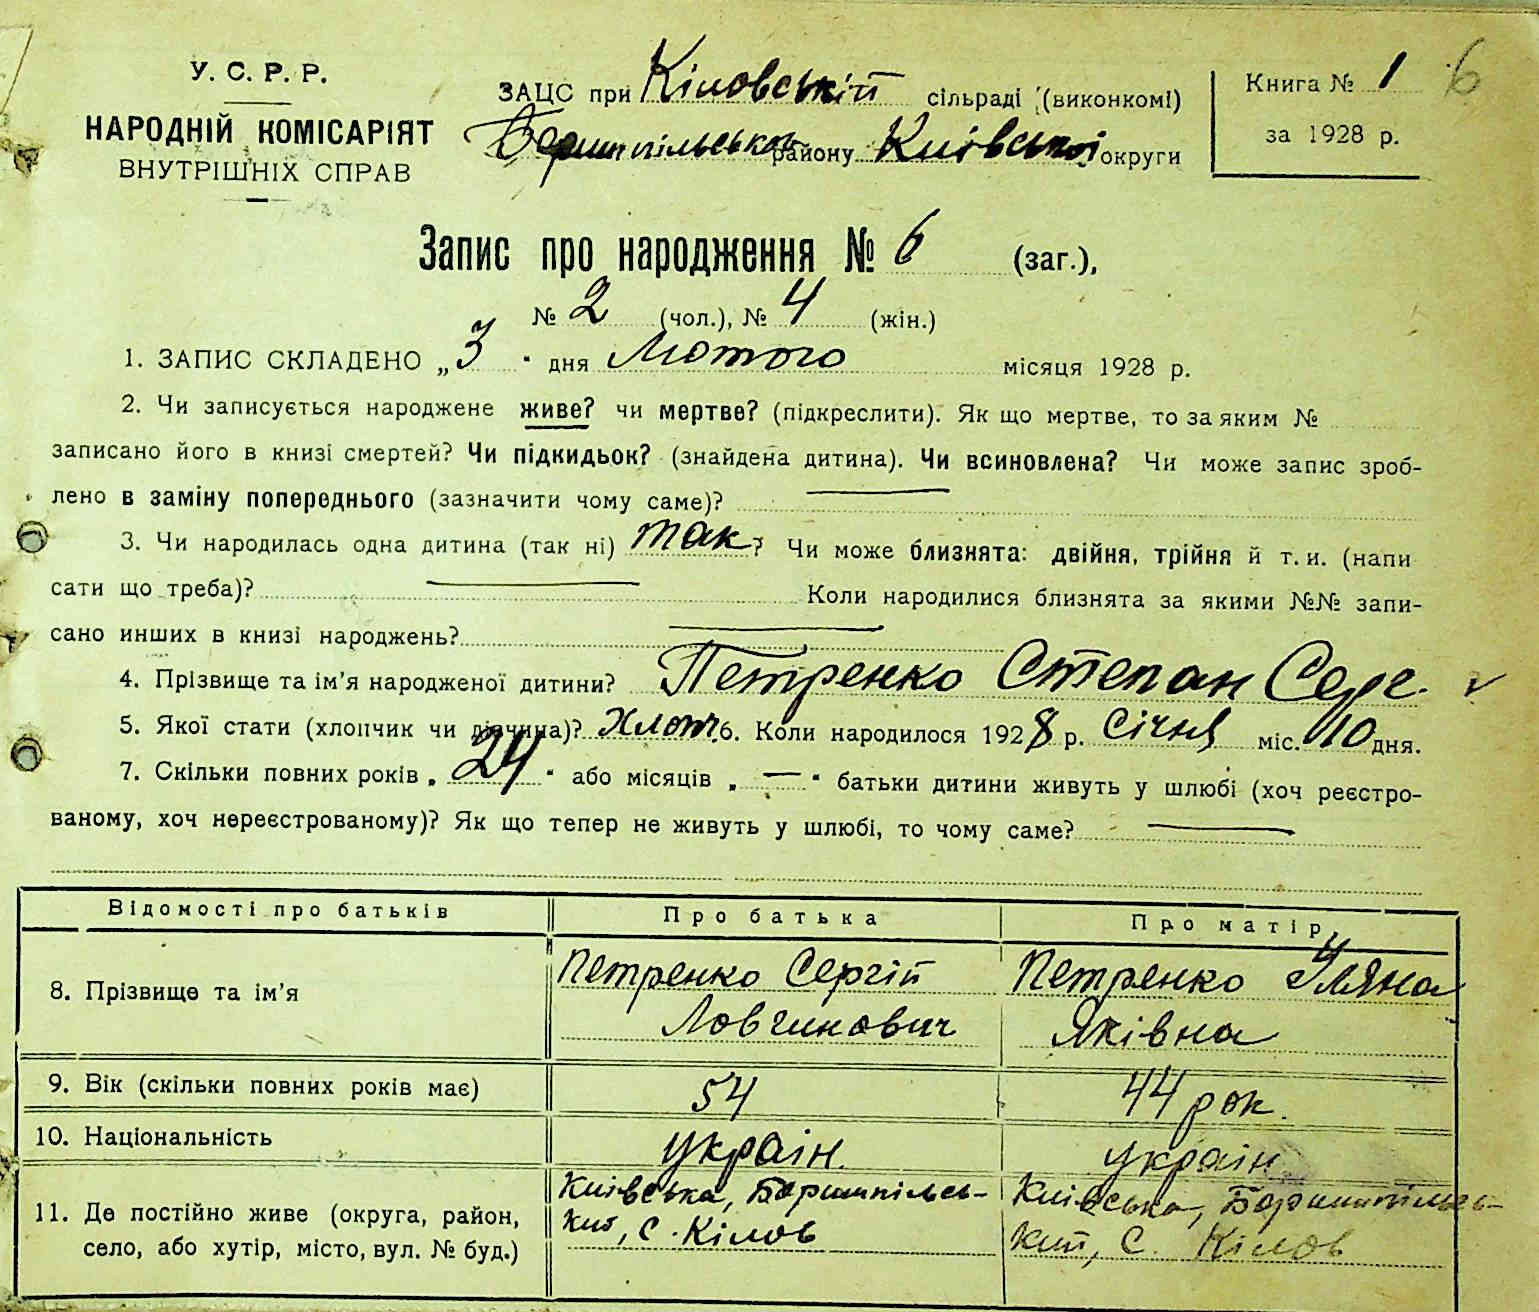 У. С. Р. Р.
НАРОДНІЙ КОМІСАРІЯТ
ВНУТРІШНІХ СПРАВ
ЗАЦС при Кіловській сільраді (виконкомі)
Баришпільського району Київської округи
Книга № 1 6
за 1928 р.
Запис про народження № 6 (заг.),
№ 2 (чол.), № 4 (жін.)
1. ЗАПИС СКЛАДЕНО „3" дня Лютого місяця 1928 р.
2. Чи записується народжене живе? чи мертве? (підкреслити). Як що мертве, то за яким №
записано його в книзі смертей? Чи підкидьок? (знайдена дитина). Чи всиновлена? Чи може запис зроб-
лено в заміну попереднього (зазначити чому саме)? —
3. Чи народилась одна дитина (так ні) так? Чи може близнята: двійня, трійня й т. и. (напи
сати що треба)? — Коли народилися близнята за якими №№ запи-
сано инших в книзі народжень? —
4. Прізвище та ім'я народженої дитини? Петренко Степан Серг.
5. Якої стати (хлопчик чи дівчина)? Хлопч. 6. Коли народилося 1928 р. Січня міс. 10 дня.
7. Скільки повних років „24" або місяців „—" батьки дитини живуть у шлюбі (хоч реєстро-
ваному, хоч нереєстрованому)? Як що тепер не живуть у шлюбі, то чому саме? —
Відомості про батьків Про батька Про матір
8. Прізвище та ім'я Петренко Сергій Петренко Уляна
Логвинович Яківна
9. Вік (скільки повних років має) 54 44 рок.
10. Національність україн. україн.
11. Де постійно живе (округа, район, Київська, Баришпільсь- Київська, Баришпільсь-
село, або хутір, місто, вул. № буд.) кий, с. Кілов кий, С. Кілов